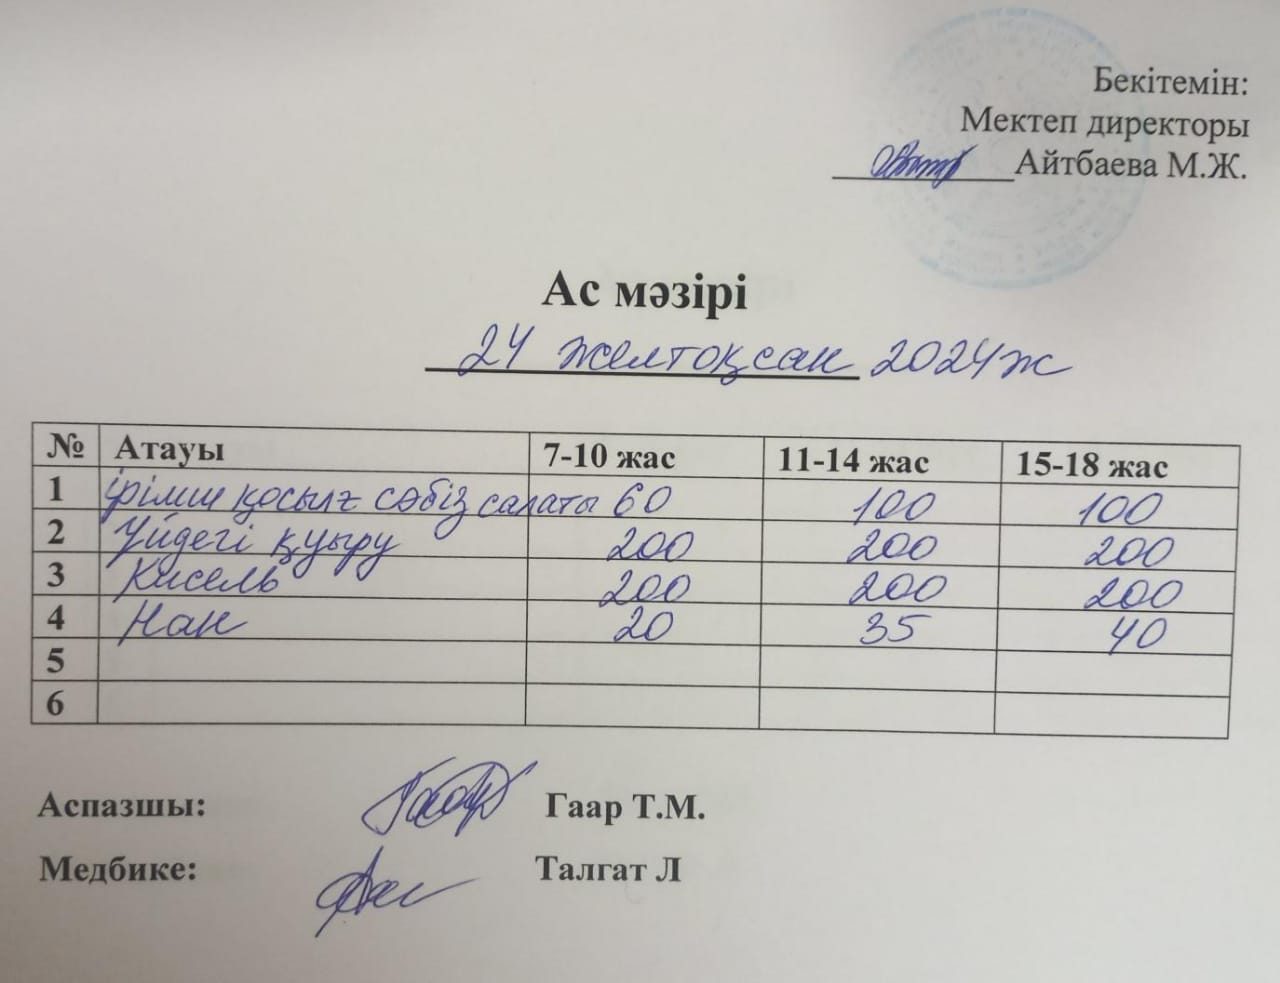 Бекітемін:
Мектеп директоры
Айтбаева М.Ж.
Ас мәзірі
24 желтоқсан 2024ж
№ Атауы 7-10 жас 11-14 жас 15-18 жас
1 ірімш қосылғ сәбіз салаты 60 100 100
2 Үйдегі қуыру 200 200 200
3 Кисель 200 200 200
4 Нан 20 35 40
5
6
Аспазшы: Гаар Т.М.
Медбике: Талгат Л